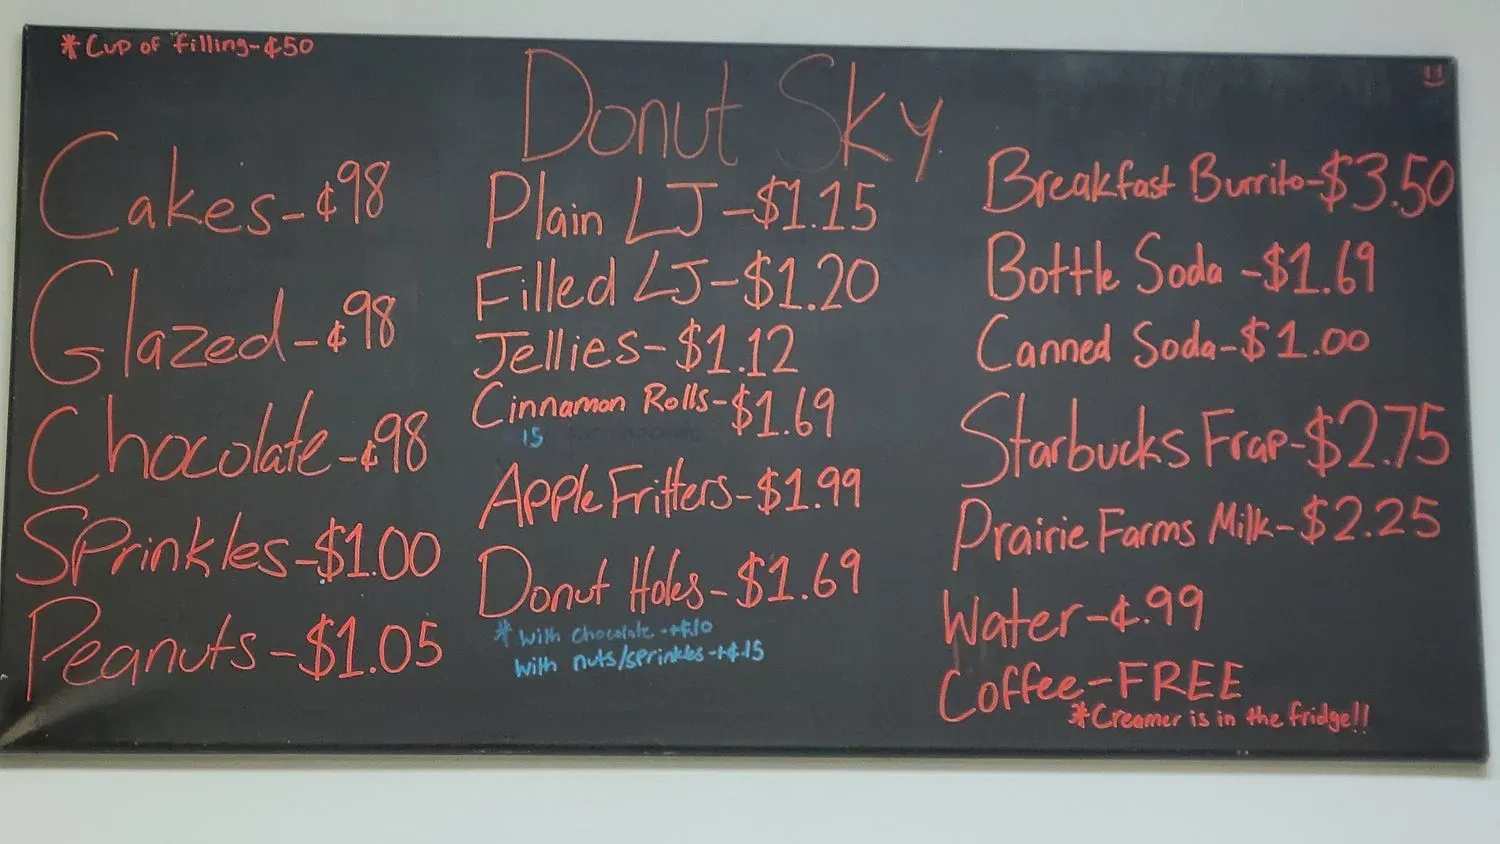 *Cup of filling-¢50
Donut Sky
Cakes-¢98
Glazed-¢98
Chocolate-¢98
Sprinkles-$1.00
Peanuts-$1.05
Plain LJ-$1.15
Filled LJ-$1.20
Jellies-$1.12
Cinnamon Rolls-$1.69
15
Apple Fritters-$1.99
Donut Holes-$1.69
*with chocolate-+¢10
with nuts/sprinkles-+¢.15
Breakfast Burrito-$3.50
Bottle Soda-$1.69
Canned Soda-$1.00
Starbucks Frap-$2.75
Prairie Farms Milk-$2.25
Water-¢.99
Coffee-FREE
*Creamer is in the fridge!!